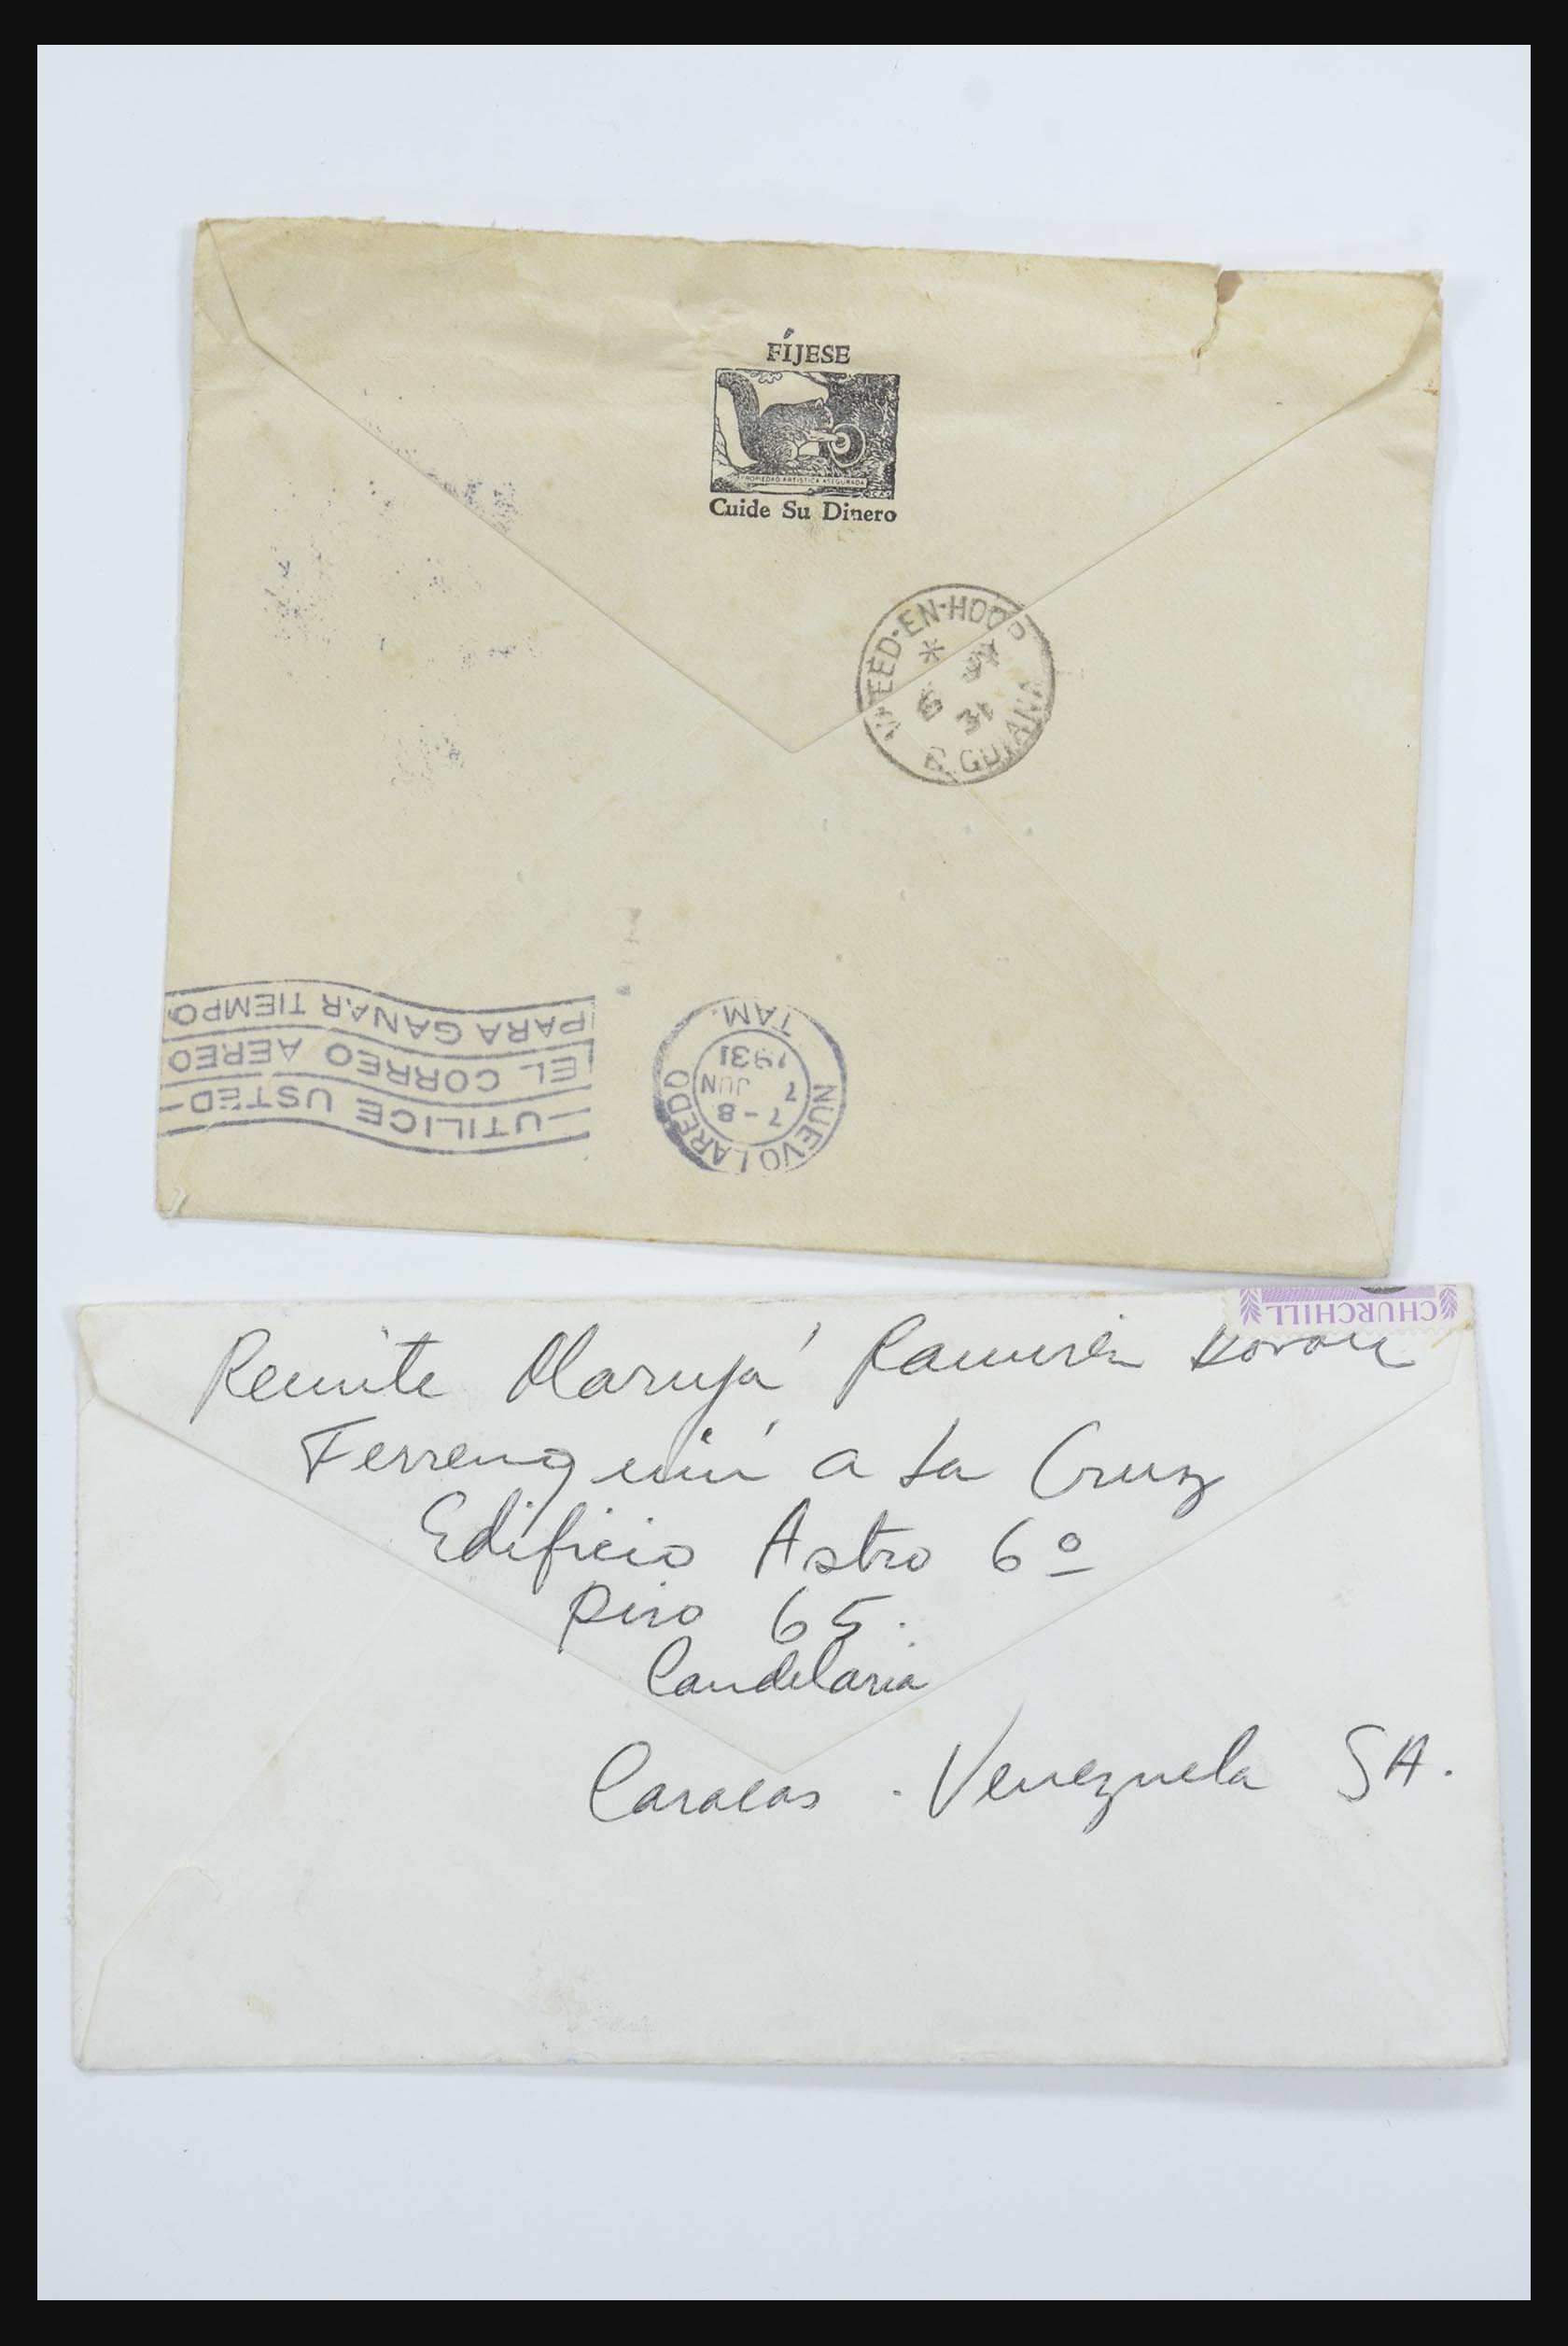 FÍJESE
PROPIEDAD ARTISTICA ASEGURADA
Cuide Su Dinero
VREED-EN-HOOP
31
B. GUIANA
UTILICE USTED
EL CORREO AEREO
PARA GANAR TIEMPO
NUEVO LAREDO
7-8
7 JUN
1931
TAM.
CHURCHILL
Remite Maruja Ramirez
Ferrenquin a La Cruz
Edificio Astro 6º
piso 65.
Candelaria
Caracas. Venezuela SA.